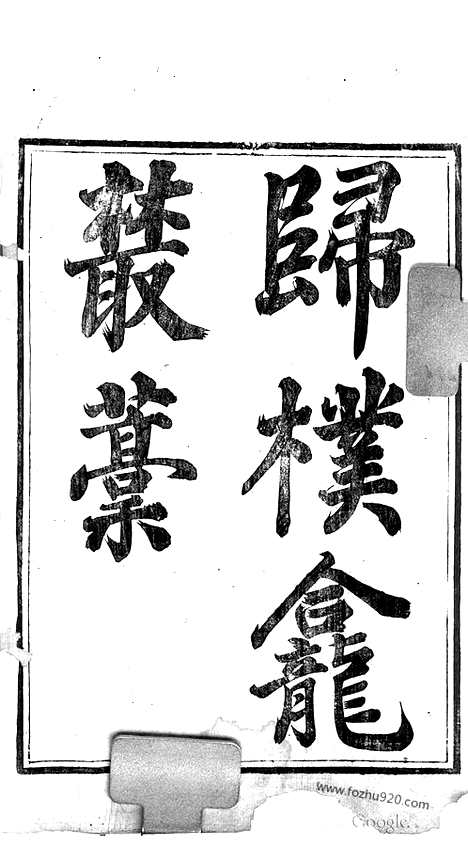 歸樸龕
叢藁
www.fozhu920.com
Google